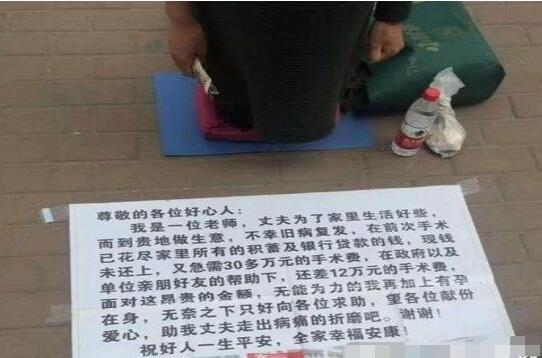 尊敬的各位好心人：
我是一位老师，丈夫为了家里生活好些，
而到贵地做生意，不幸旧病复发，在前次手术
已花尽家里所有的积蓄及银行贷款的钱，现钱
未还上，又急需30多万元的手术费，在政府以及
单位亲朋好友的帮助下，还差12万元的手术费，
面对这昂贵的金额，无能为力的我再加上有孕
在身，无奈之下只好向各位求助，望各位献份
爱心，助我丈夫走出病痛的折磨吧。谢谢！
祝好人一生平安，全家幸福安康！